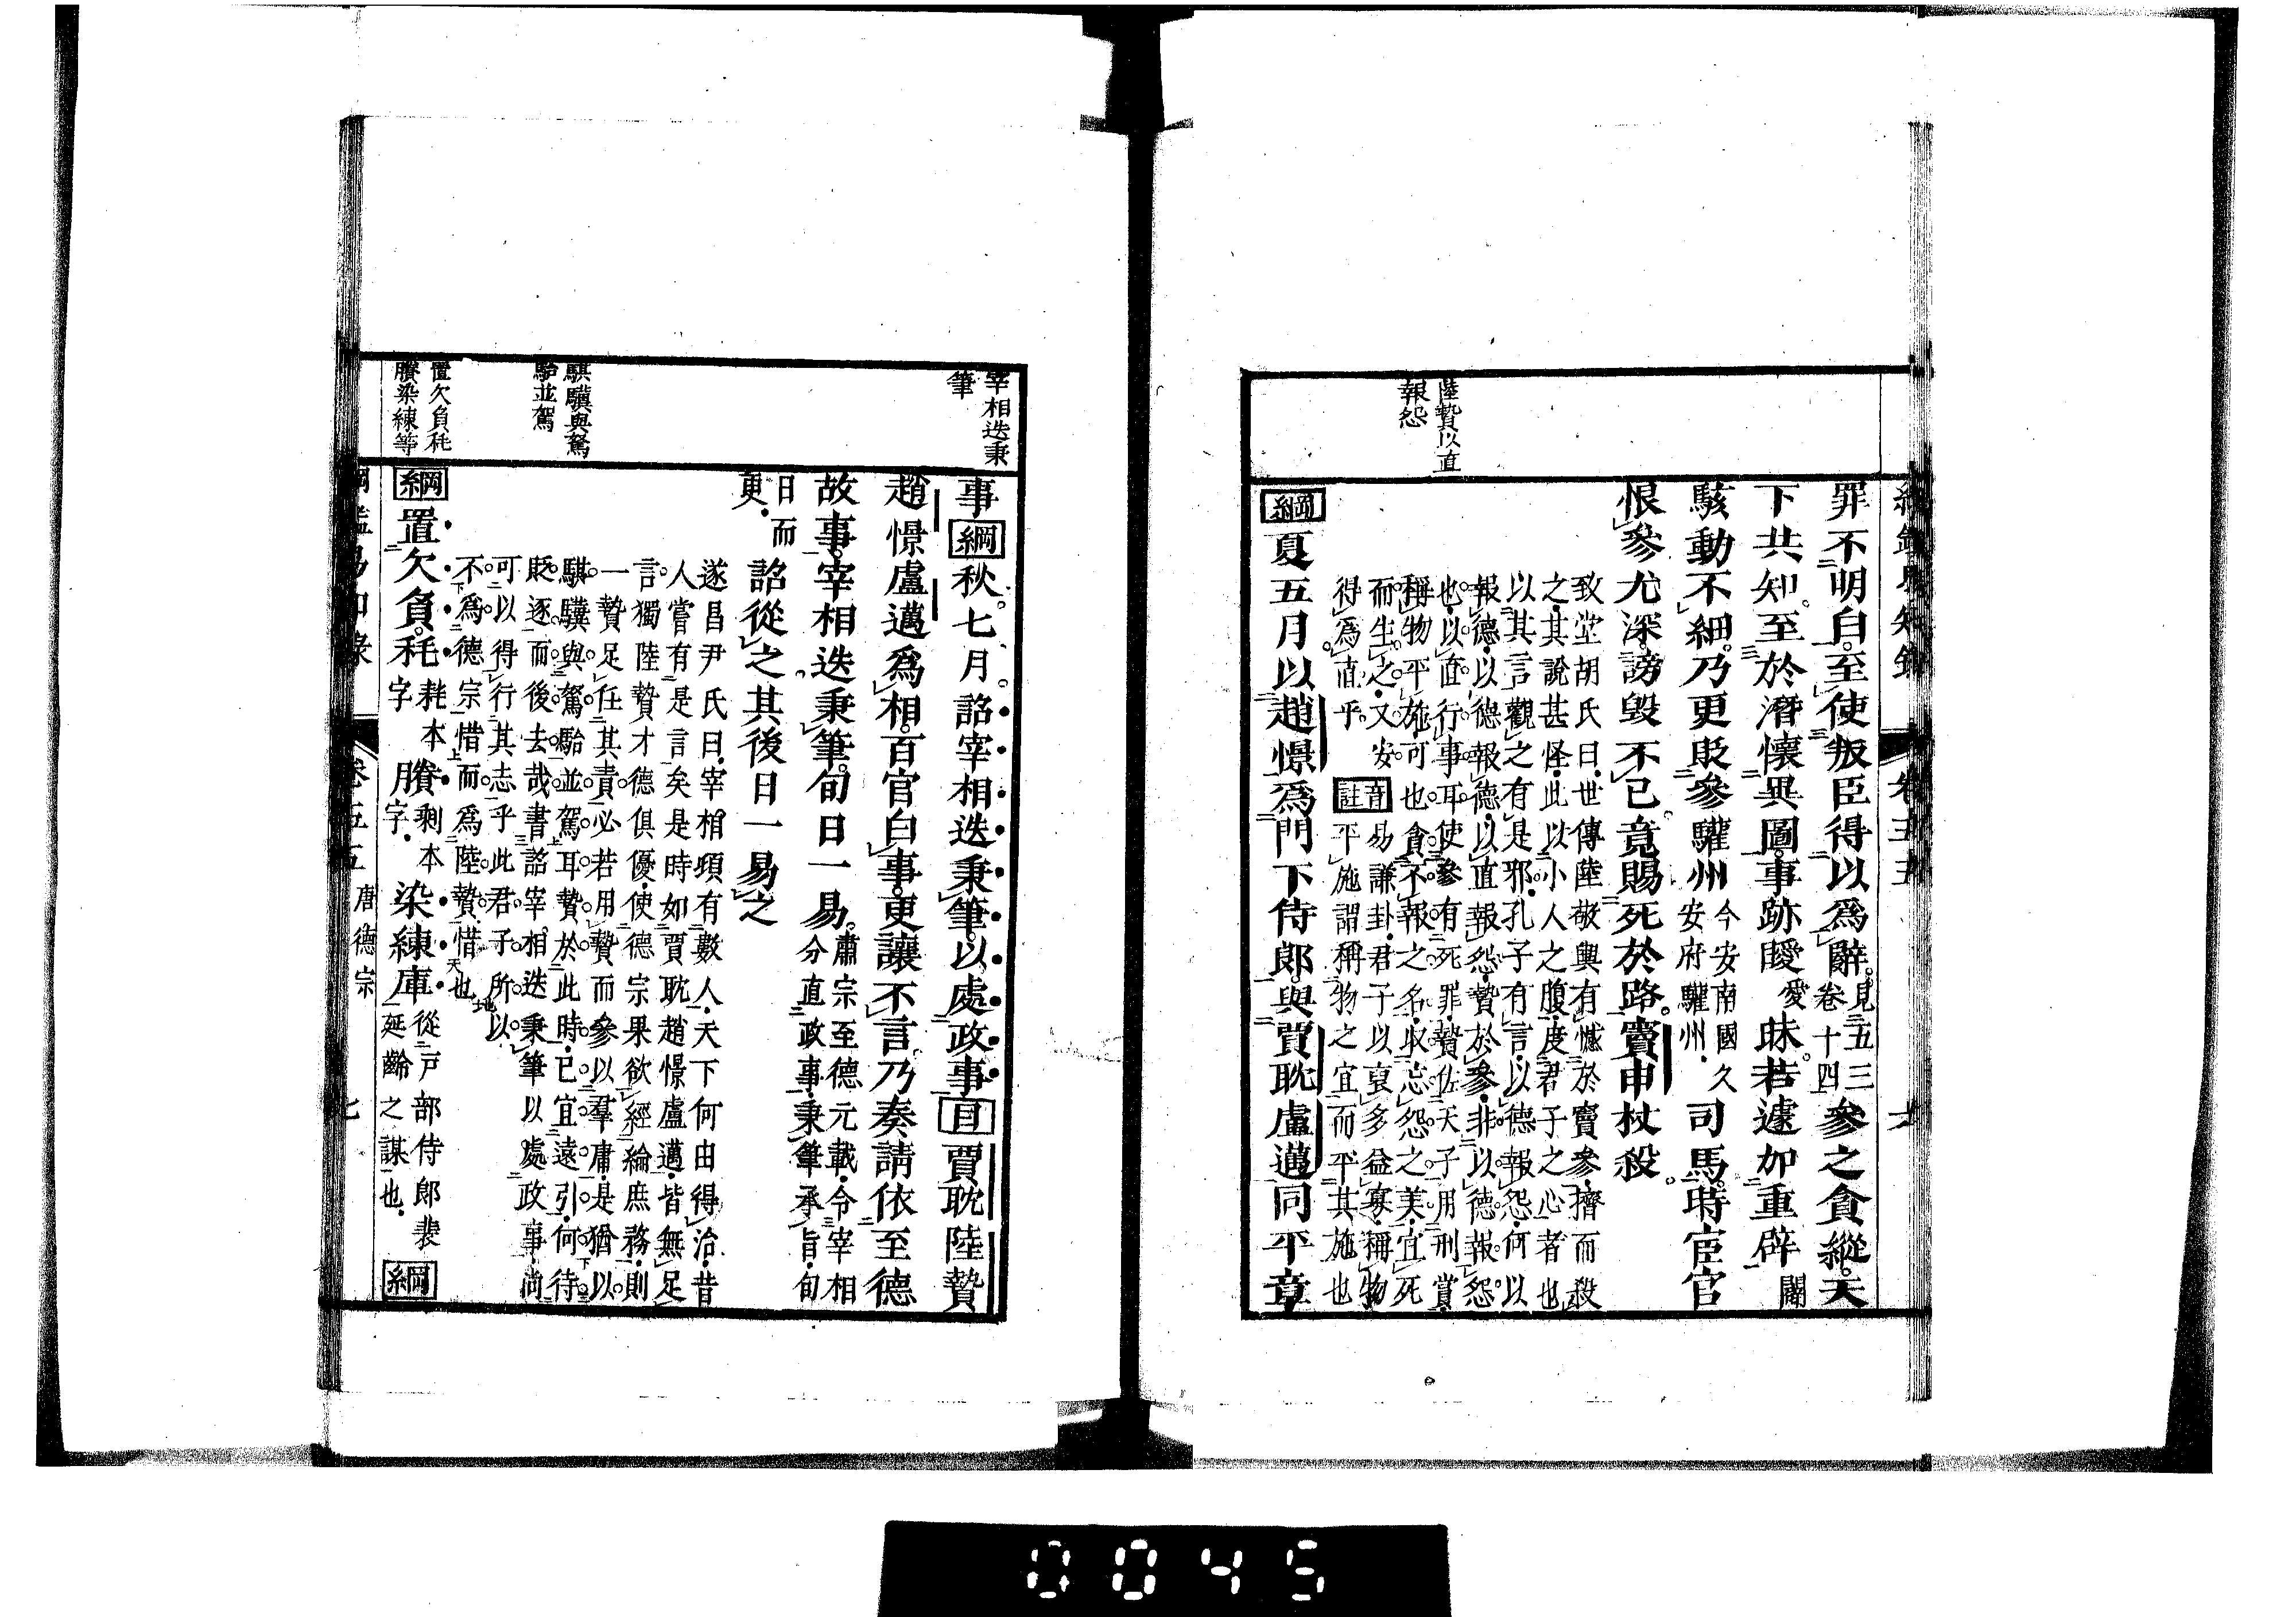 陸贄以直
報怨
罪不明白至使叛臣得以爲辭見五三卷十四參之貪縱天
下共知至於潛懷異圖事跡曖愛昧若遽加重辟闢
駭動不細乃更貶參驩州今安南國久安府驩州司馬時宦官
恨參尤深謗毀不已竟賜死於路竇申杖殺
致堂胡氏曰世傳陸敬輿有憾於竇參擠而殺
之其說甚怪此以小人之腹度君子之心者也
以其言觀之有是邪孔子有言以德報怨何以
報德以德報德以直報怨贄於參非以德報怨
也以直行事耳使參有死罪贄佐天子用刑賞
稱物平施可也貪不報之名取忘怨之美宜死
而生之又安
得爲直乎
音註
易謙卦君子以裒多益寡稱物
平施謂稱物之宜而平其施也
綱夏五月以趙憬爲門下侍郎與賈耽盧邁同平章
宰相迭秉
筆
騏驥與駑
駘並駕
置欠負耗
賸染練等
事綱秋七月詔宰相迭秉筆以處政事目賈耽陸贄
趙憬盧邁爲相百官白事更讓不言乃奏請依至德
故事宰相迭秉筆旬日一易肅宗至德元載令宰相分直政事秉筆承旨旬
日而更詔從之其後日一易之
遂昌尹氏曰宰相頃有數人天下何由得治昔
人嘗有是言矣是時如賈耽趙憬盧邁皆無足
言獨陸贄才德俱優使德宗果欲經綸庶務則
一贄足任其責必若用贄而參以羣庸是猶以
騏驥與駑駘並駕耳贄於此時已宜遠引何待
貶逐而後去哉書詔宰相迭秉筆以處政事尚
可以得行其志乎此君子所以
不爲德宗惜而爲陸贄惜也
綱置欠負耗耗本字賸剩本字染練庫從戶部侍郎裴延齡之謀也綱
卷五五
唐德宗
七
0045